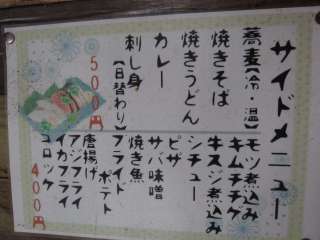 サイドメニュー
蕎麦【冷・温】
焼きそば
焼きうどん
カレー
刺し身
【日替わり】
500円
モツ煮込み
キムチチゲ
牛スジ煮込み
シチュー
ピザ
サバ味噌
焼き魚
フライド
ポテト
唐揚げ
アジフライ
イカフライ
コロッケ
400円